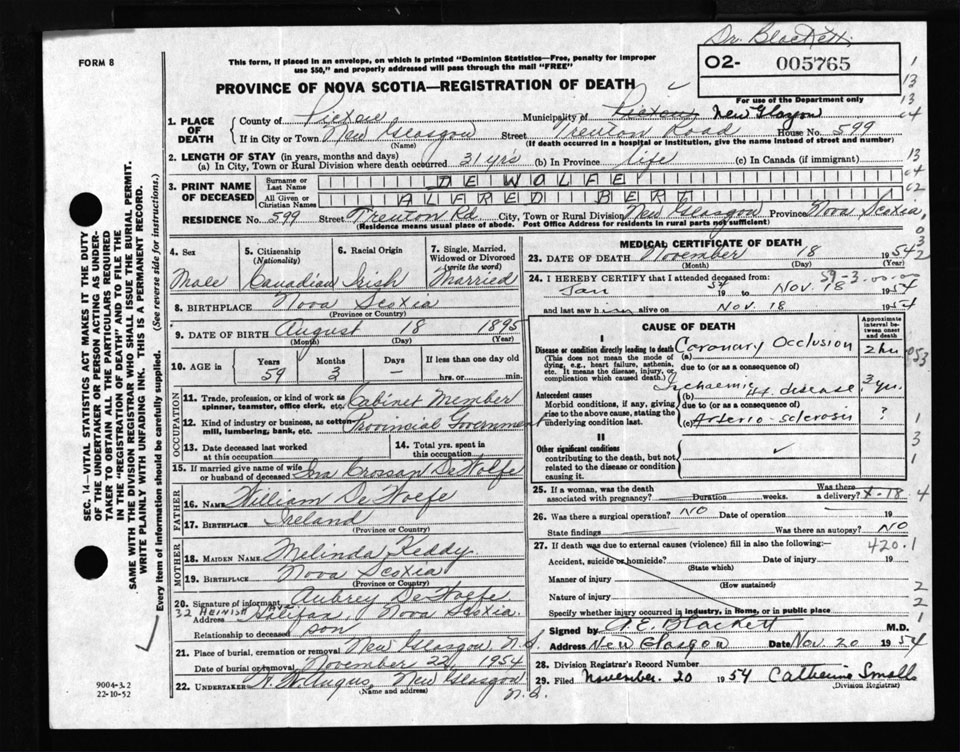 Dr. Blackett
FORM 8
This form, if placed in an envelope, on which is printed "Dominion Statistics—Free, penalty for improper
use $50," and properly addressed will pass through the mail "FREE"
O2- 005765
PROVINCE OF NOVA SCOTIA—REGISTRATION OF DEATH
For use of the Department only
1. PLACE OF DEATH
County of Pictou Municipality of Pictou New Glasgow
If in City or Town New Glasgow Street Trenton Road House No. 599
(Name) (If death occurred in a hospital or institution, give the name instead of street and number)
2. LENGTH OF STAY (in years, months and days)
(a) In City, Town or Rural Division where death occurred 31 yrs (b) In Province life (c) In Canada (if immigrant)
3. PRINT NAME OF DECEASED
Surname or Last Name DEWOLFE
All Given or Christian Names ALFRED BERT
RESIDENCE No. 599 Street Trenton Rd City, Town or Rural Division New Glasgow Province Nova Scotia
(Residence means usual place of abode. Post Office Address for residents in rural parts not sufficient)
4. Sex Male
5. Citizenship (Nationality) Canadian
6. Racial Origin Irish
7. Single, Married, Widowed or Divorced (write the word) Married
8. BIRTHPLACE Nova Scotia
(Province or Country)
9. DATE OF BIRTH August 18 1895
(Month) (Day) (Year)
10. AGE in Years 59 Months 3 Days — If less than one day old hrs. or min.
OCCUPATION
11. Trade, profession, or kind of work as spinner, teamster, office clerk, etc. Cabinet Member
12. Kind of industry or business, as cotton mill, lumbering, bank, etc. Provincial Government
13. Date deceased last worked at this occupation
14. Total yrs. spent in this occupation
15. If married give name of wife or husband of deceased Ina Crossan DeWolfe
FATHER
16. NAME William DeWolfe
17. BIRTHPLACE Ireland
(Province or Country)
MOTHER
18. MAIDEN NAME Melinda Keddy
19. BIRTHPLACE Nova Scotia
(Province or Country)
20. Signature of informant Aubrey DeWolfe
Address 32 Halifax, Nova Scotia.
Relationship to deceased son
21. Place of burial, cremation or removal New Glasgow, N.S.
Date of burial or removal November 22, 1954
22. UNDERTAKER Angus, New Glasgow N.S.
(Name and address)
MEDICAL CERTIFICATE OF DEATH
23. DATE OF DEATH November 18 1954
(Month) (Day) (Year)
59-3-00-00
24. I HEREBY CERTIFY that I attended deceased from:
Jan 54 to Nov. 18 1954
and last saw him alive on Nov. 18 1954
CAUSE OF DEATH
Approximate interval between onset and death
I
Disease or condition directly leading to death
(This does not mean the mode of dying, e.g., heart failure, asthenia, etc. It means the disease, injury, or complication which caused death.)
(a) Coronary Occlusion 2 hr
due to (or as a consequence of)
Antecedent causes
Morbid conditions, if any, giving rise to the above cause, stating the underlying condition last.
(b) Ischaemic ht. disease 3 yrs.
due to (or as a consequence of)
(c) Arterio-sclerosis ?
II
Other significant conditions
contributing to the death, but not related to the disease or condition causing it.
25. If a woman, was the death associated with pregnancy? Duration weeks. Was there a delivery?
4-18
26. Was there a surgical operation? NO Date of operation 19
State findings Was there an autopsy? NO
27. If death was due to external causes (violence) fill in also the following:—
420.1
Accident, suicide or homicide? Date of injury 19
(State which)
Manner of injury
(How sustained)
Nature of injury
Specify whether injury occurred in industry, in home, or in public place
Signed by A. E. Blackett M.D.
Address New Glasgow Date Nov. 20 1954
28. Division Registrar's Record Number
29. Filed November. 20 1954 Catherine Smalls
(Division Registrar)
SEC. 14—VITAL STATISTICS ACT MAKES IT THE DUTY
OF THE UNDERTAKER OR PERSON ACTING AS UNDER-
TAKER TO OBTAIN ALL THE PARTICULARS REQUIRED
IN THE "REGISTRATION OF DEATH" AND TO FILE THE
SAME WITH THE DIVISION REGISTRAR WHO SHALL ISSUE THE BURIAL PERMIT.
WRITE PLAINLY WITH UNFADING INK. THIS IS A PERMANENT RECORD.
Every item of information should be carefully supplied. (See reverse side for instructions.)
9004-3.2
22-10-52